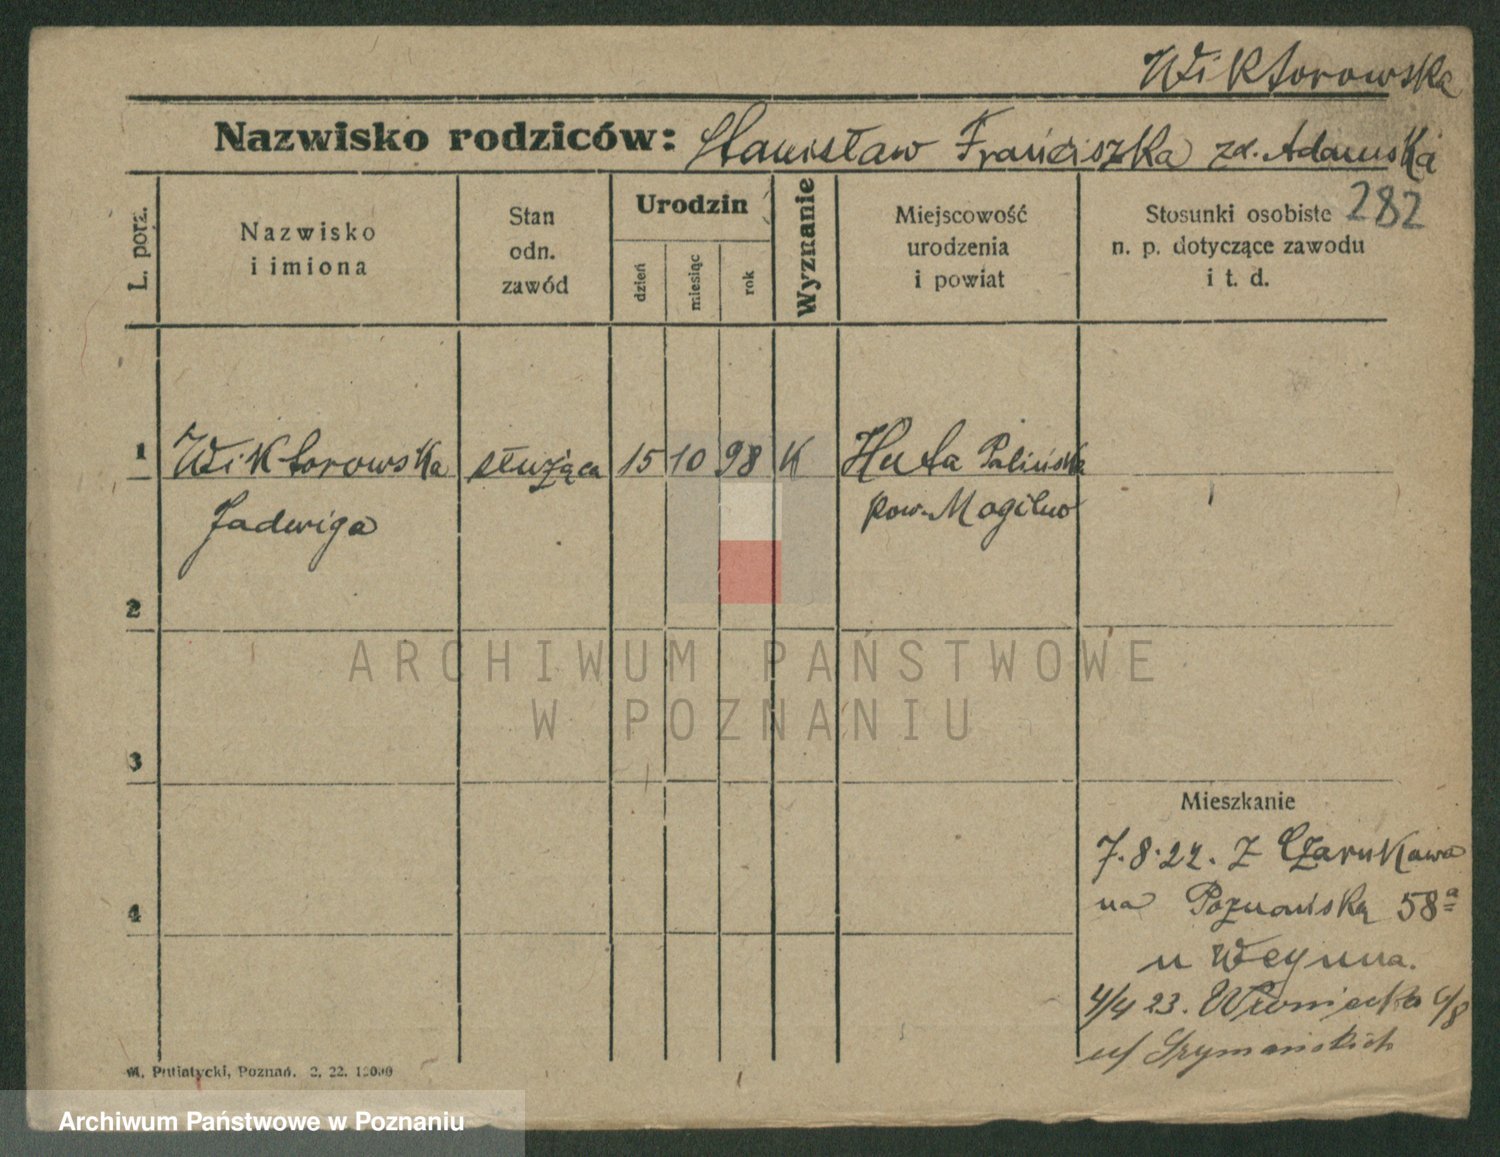 Wiktorowska
Nazwisko rodziców: Stanisław Franciszka zd. Adamska
282
L. porz.
Nazwisko
i imiona
Stan
odn.
zawód
Urodzin
dzień
miesiąc
rok
Wyznanie
Miejscowość
urodzenia
i powiat
Stosunki osobiste
n. p. dotyczące zawodu
i t. d.
1 Wiktorowska służąca 15 10 98 K Huta Palińska
Jadwiga pow. Mogilno
2
3
4
Mieszkanie
7.8.22. Z Czarnkowa
na Poznańską 58a
u Weyma.
4/4 23. Wroniecka 6/8
u/ Szymańskich
ARCHIWUM PAŃSTWOWE
W POZNANIU
M. Putiatycki, Poznań. 2. 22. 12000
Archiwum Państwowe w Poznaniu